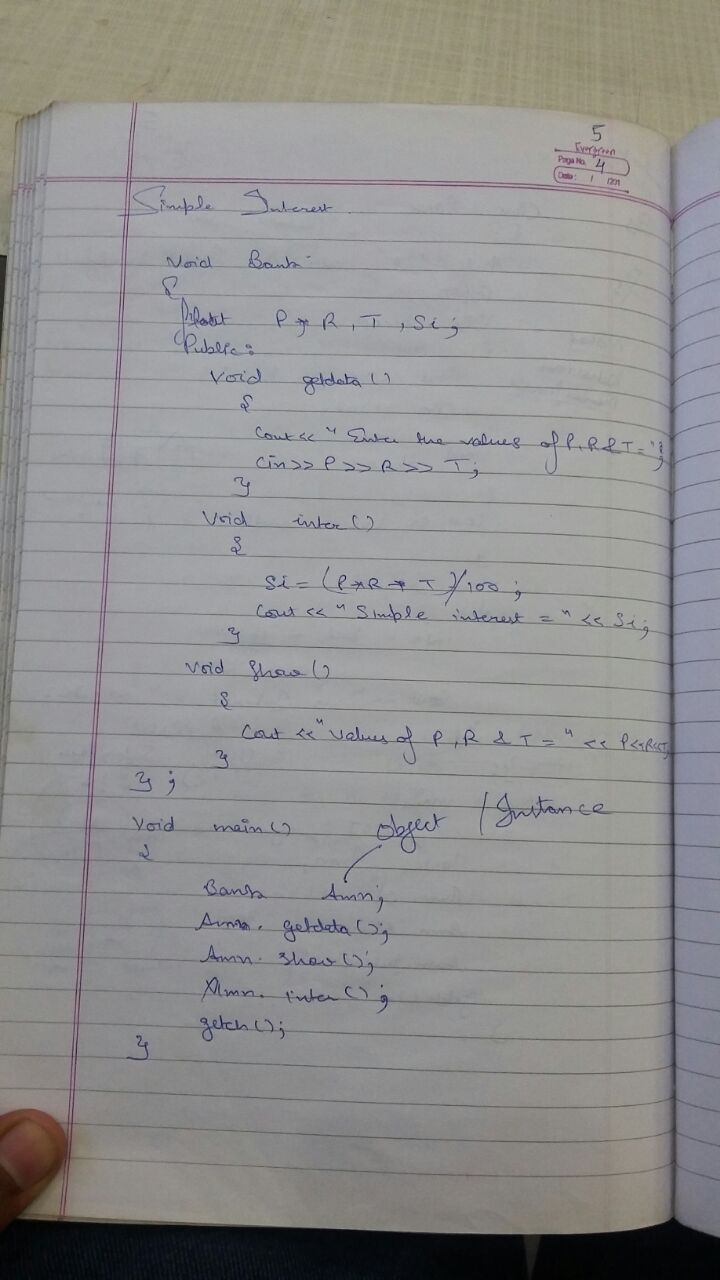 5
Evergreen
Page No. 4
Date: / /201
Simple Interest.
Void Bank
{
float P, R, T, Si;
Public:
Void getdata ()
{
Cout << " Enter the values of P, R & T = ";
Cin >> P >> R >> T;
}
Void inter ()
{
Si = (P*R * T)/100 ;
Cout << " Simple interest = " << Si;
}
Void show ()
{
Cout << " Values of P, R & T = " << P<<R<<T;
}
} ;
Void main () Object / Instance
{
Bank Amn;
Amn. getdata ();
Amn. show ();
Amn. inter ();
getch ();
}